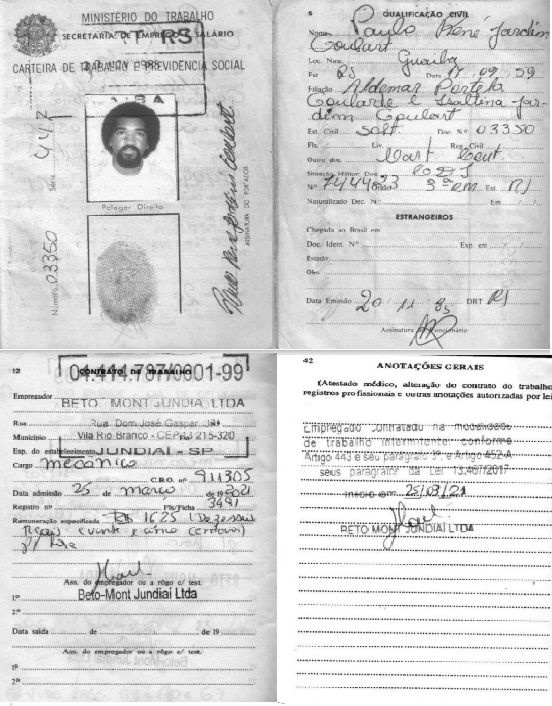 MINISTERIO DO TRABALHO
SECRETARIA DE EMPREGO E SALÁRIO
RS
CARTEIRA DE TRABALHO E PREVIDÊNCIA SOCIAL
Série 447
Número 03350
Polegar Direito
ASSINATURA DO PORTADOR
6
QUALIFICAÇÃO CIVIL
Nome Paulo René Jardim
Goulart
Loc. Nasc. Guaíba
Est. RS Data 17 09 59
Filiação Aldemar Portela
Goularte e Isaltina Jar-
dim Goulart
Est. Civil Solt. Doc. Nº 03350
Fls. Liv. Reg. Civil
Outro doc.
Situação Militar: Doc.
Nº Est.
Naturalizado Dec. N.º Em / /
ESTRANGEIROS
Chegada ao Brasil em
Doc. Ident. N.º Exp. em / /
Estado
Obs.
Data Emissão 20 11 85 DRT
Assinatura do Funcionário
12
CONTRATO DE TRABALHO
04.414.787/0001-99
Empregador BETO MONT JUNDIAI LTDA
Rua Rua Dom José Gaspar
Município Vila Rio Branco - CEP 13 215-320
Esp. do estabelecimento JUNDIAÍ - SP
Cargo mecânico
C.B.O. nº 911305
Data admissão 25 de março de 19 2021
Registro nº Fls/Ficha 3491
Remuneração especificada R$ 16,25 (Dezesseis
Reais e vinte e cinco centavos)
p/ hora
Ass. do empregador ou a rôgo c/ test.
1º Beto-Mont Jundiai Ltda
2º
Data saída de de 19
Ass. do empregador ou a rôgo c/ test.
1º
2º
42
ANOTAÇÕES GERAIS
(Atestado médico, alteração do contrato do trabalho
registros profissionais e outras anotações autorizadas por lei
Empregado Contratado na modalidade
de trabalho intermitente conforme
Artigo 443 e seu parágrafo 3º e Artigo 452-A
seus parágrafos da Lei 13.467/2017
Início em 25/03/21
BETO MONT JUNDIAÍ LTDA